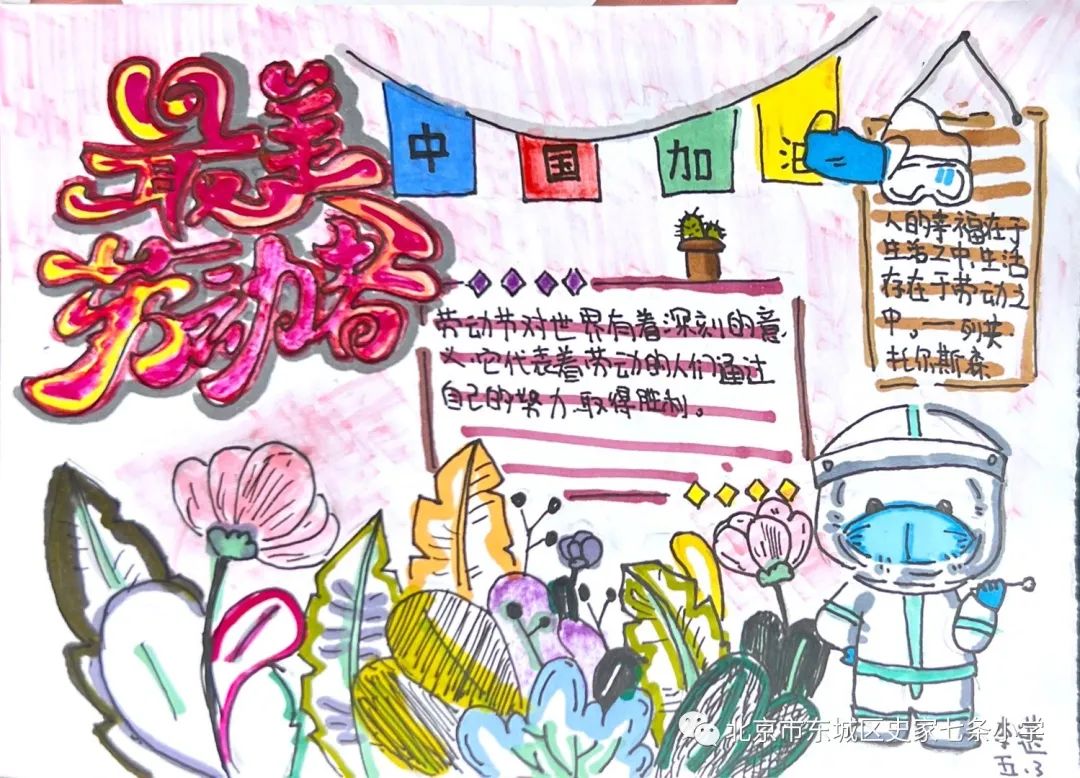 最美
劳动者
中国加油
人的幸福在于
生活之中,生活
存在于劳动之
中。——列夫
托尔斯泰
劳动节对世界有着深刻的意
义.它代表着劳动的人们通过
自己的努力取得胜利。
北京市东城区史家七条小学
五.3